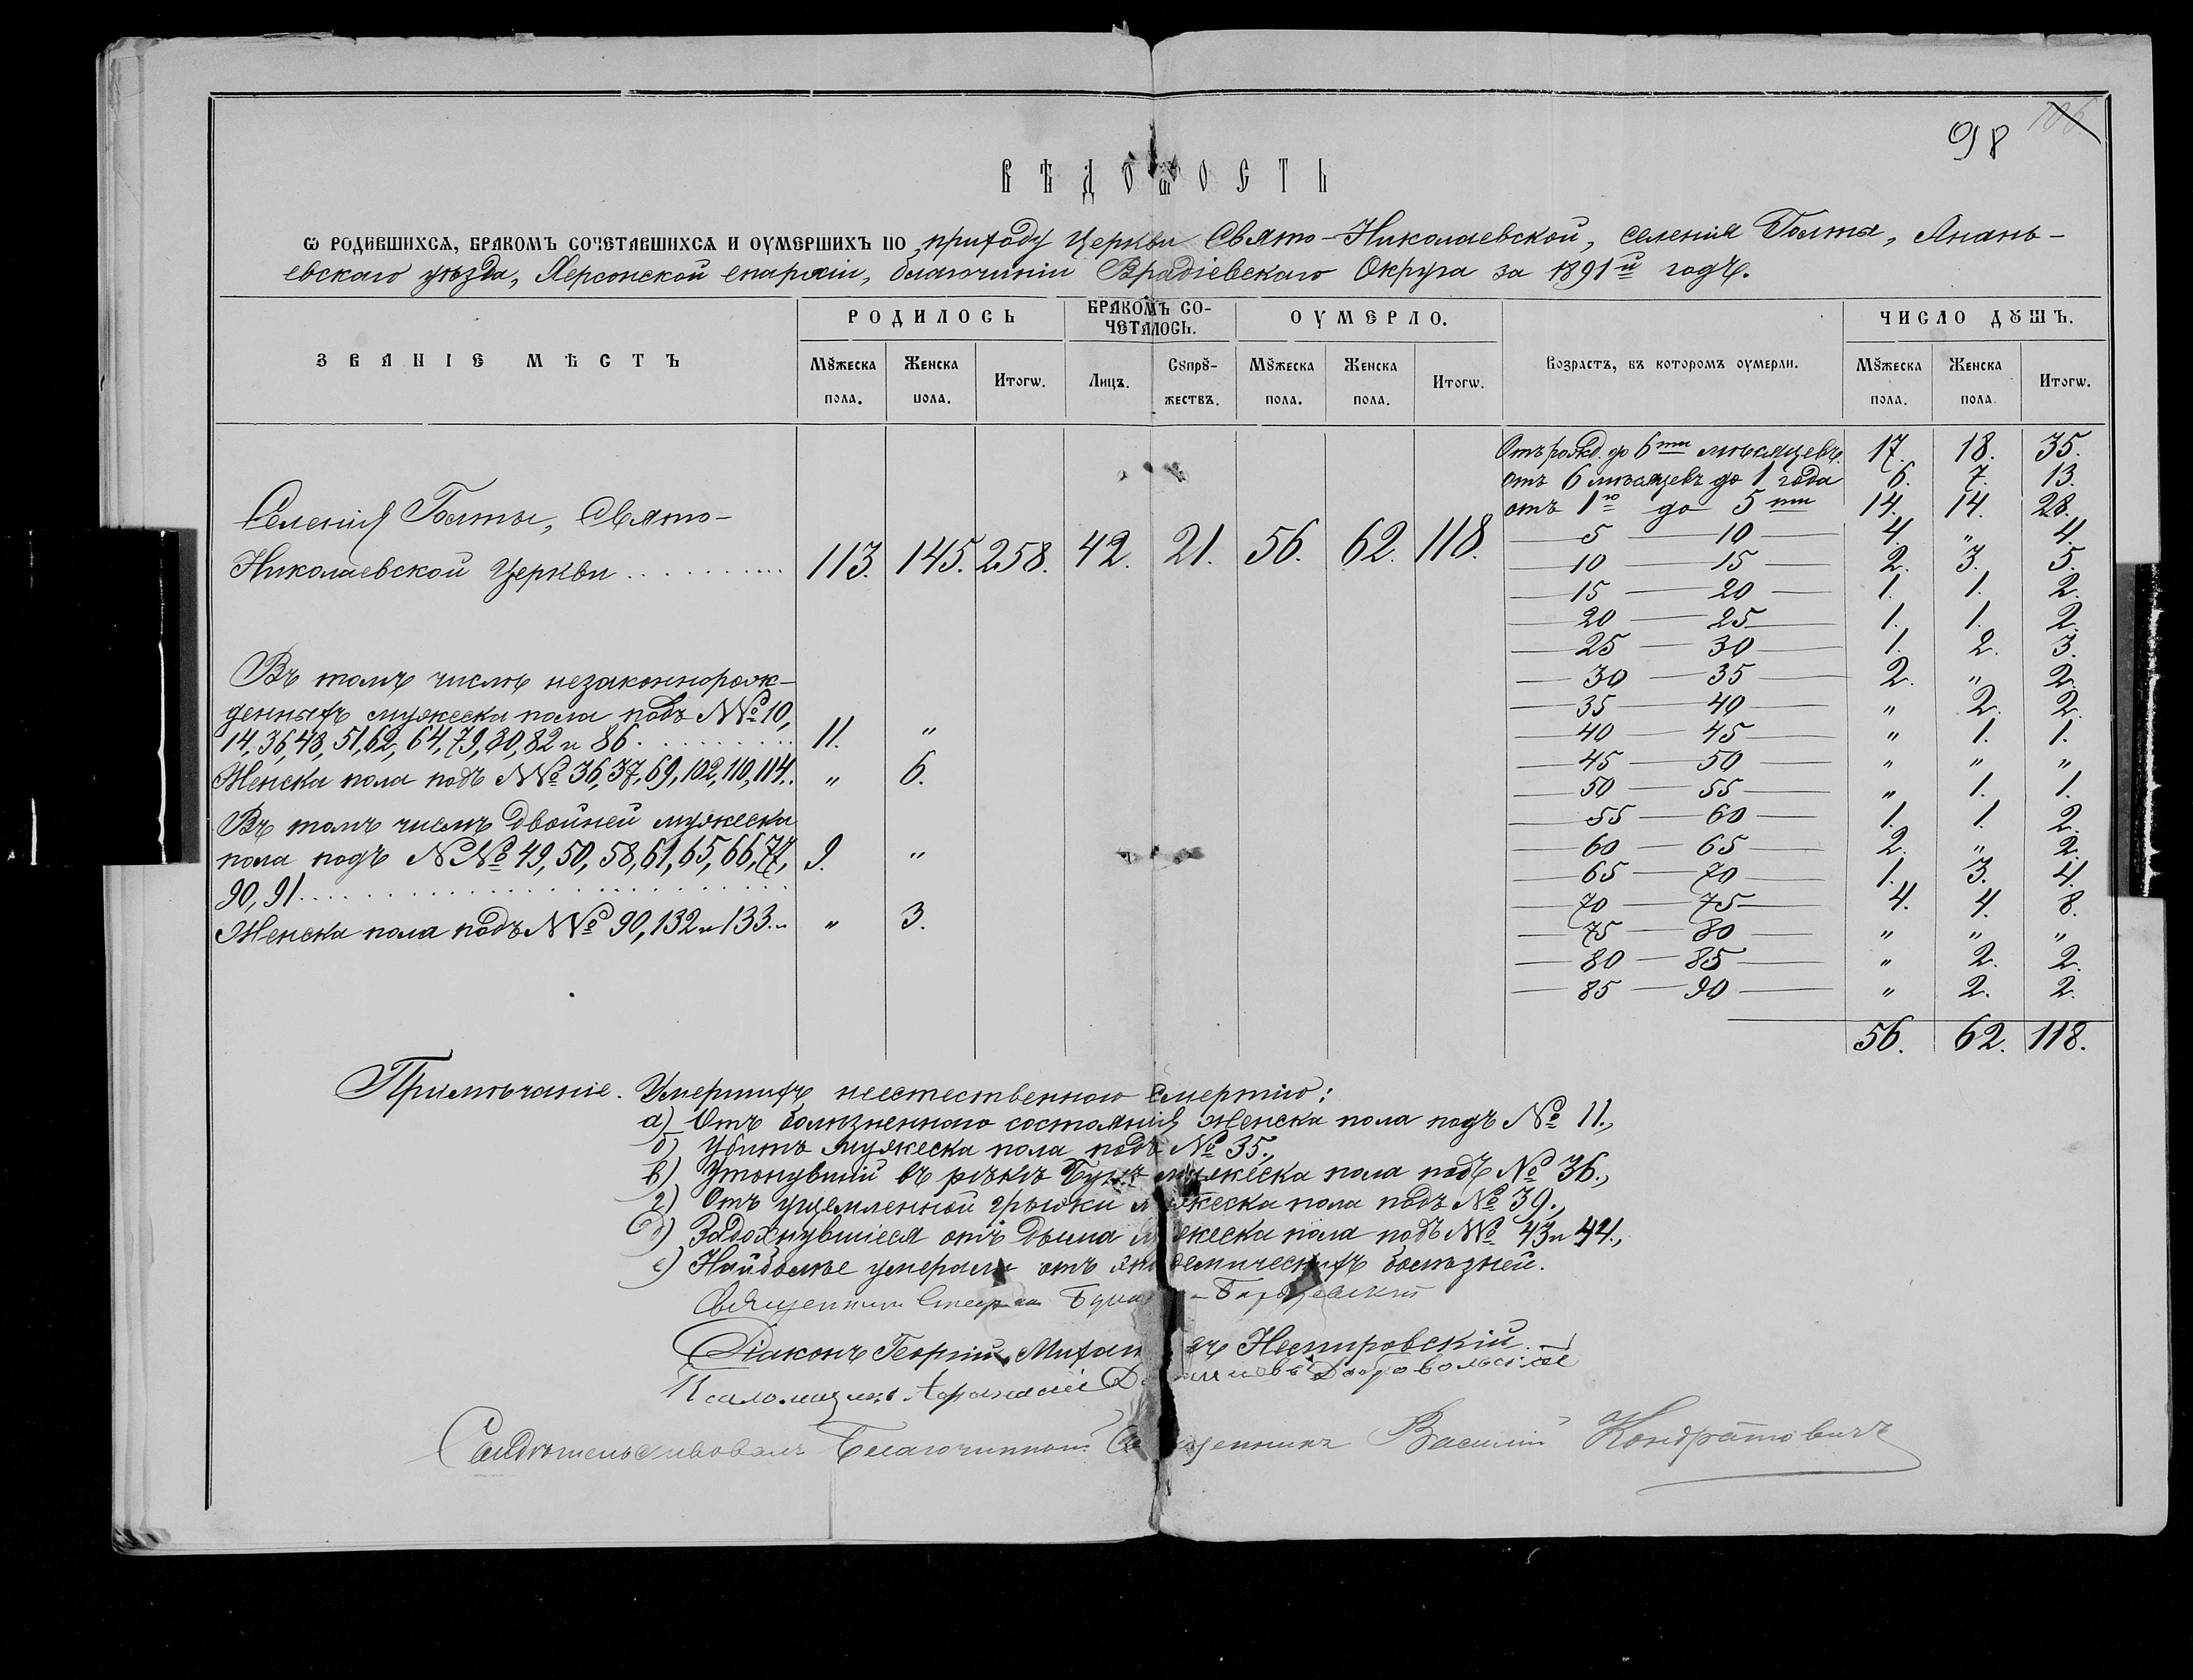 98 106
ВѢДОМОСТЬ
Ѡ РОДИВШИХСѦ, БРАКОМЪ СОЧЕТАВШИХСѦ И ОУМЕРШИХЪ ПО приходу Церкви Свято-Николаевской, селенія Голта, Анань-
евскаго уѣзда, Херсонской епархіи, благочинія Врадіевскаго Округа за 1891й годъ.
ЗВАНІЕ МѢСТЪ РОДИЛОСЬ БРАКОМЪ СО-ЧЕТАЛОСЬ. ОУМЕРЛО. Возрастъ, въ которомъ оумерли. ЧИСЛО ДꙊШЪ.
Мꙋжеска пола. Женска пола. Итогѡ. Лицъ. Сѹпрꙋ-жествъ. Мꙋжеска пола. Женска пола. Итогѡ. Мꙋжеска пола. Женска пола. Итогѡ.
Селенія Голты, Свято-
Николаевской Церкви . . . . . . . . 113. 145. 258. 42. 21. 56. 62. 118.
Въ томъ числѣ незаконнорож-
денныхъ мужеска пола подъ №№ 10,
14, 36, 48, 51, 62, 64, 79, 80, 82 и 86 . . . . . . . 11. "
Женска пола подъ №№ 36, 37, 69, 102, 110, 114. . " 6.
Въ томъ числѣ двойней мужеска
пола подъ №№ 49, 50, 58, 61, 65, 66, 77, 9. "
90, 91 . . . . . . . . . . . . . . . .
Женска пола подъ №№ 90, 132 и 133. " 3.
Отъ рожд. до 6ти мѣсяцевъ. 17. 18. 35.
отъ 6 мѣсяцевъ до 1 года 6. 7. 13.
отъ 1го до 5ти 14. 14. 28.
— 5 — 10 — 4. " 4.
— 10 — 15 — 2. 3. 5.
— 15 — 20 — 1. 1. 2.
— 20 — 25 — 1. 1. 2.
— 25 — 30 — 1. 2. 3.
— 30 — 35 — 2. " 2.
— 35 — 40 — " 2. 2.
— 40 — 45 — " 1. 1.
— 45 — 50 — " " "
— 50 — 55 — " 1. 1.
— 55 — 60 — 1. 1. 2.
— 60 — 65 — 2. " 2.
— 65 — 70 — 1. 3. 4.
— 70 — 75 — 4. 4. 8.
— 75 — 80 — " " "
— 80 — 85 — " 2. 2.
— 85 — 90 — " 2. 2.
56. 62. 118.
Примѣчаніе. Умершихъ неестественною смертію:
а) Отъ болѣзненнаго состоянія женска пола подъ № 11.,
б) Убитъ мужеска пола подъ № 35.,
в) Утонувшій въ рѣкѣ Бугѣ мужеска пола подъ № 36.,
г) Отъ ущемленной грыжи мужеска пола подъ № 39.,
д) Задохнувшіеся отъ дыма мужеска пола подъ №№ 43 и 44.,
е) Наиболѣе умерали отъ эпидемическихъ болѣзней.
Священникъ
Діаконъ Георгій Нестеровскій
Псаломщикъ Афанасій Добровольскій
Свидѣтельствовалъ Благочинный Священникъ Василій Кондратовичъ